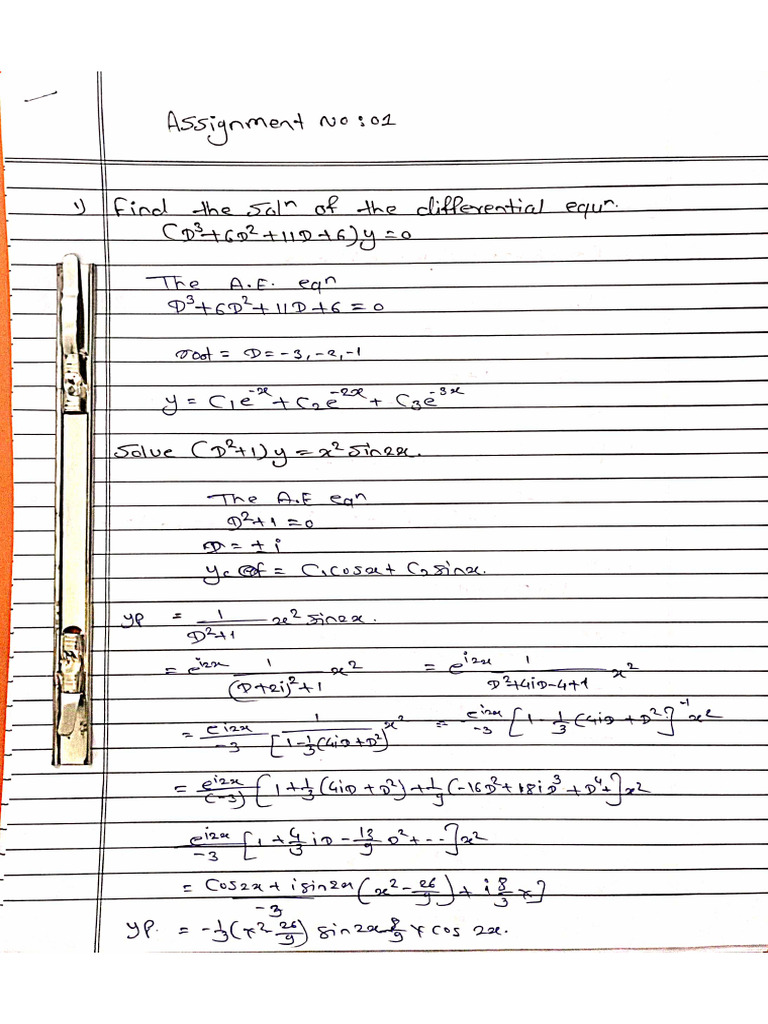 Assignment No:01
1) Find the solⁿ of the differential equⁿ.
(D³+6D²+11D+6)y=0
The A.E. eqⁿ
D³+6D²+11D+6=0
root = D=-3,-2,-1
y = C₁e⁻ˣ+C₂e⁻²ˣ+C₃e⁻³ˣ
Solve (D²+1)y=x²sin2x.
The A.E eqⁿ
D²+1=0
D=±i
yc = C₁cosx+C₂sinx.
yp = 1/(D²+1) x²sin2x.
= e^(i2x) 1/((D+2i)²+1) x² = e^(i2x) 1/(D²+4iD-4+1) x²
= e^(i2x)/-3 1/[1-1/3(4iD+D²)] x² = e^(i2x)/-3 [1-1/3(4iD+D²)]⁻¹x²
= e^(i2x)/(-3) [1+1/3(4iD+D²)+1/9(-16D²+18iD³+D⁴+]x²
e^(i2x)/-3 [1+4/3iD-13/9D²+--]x²
= (cos2x+isin2x)/-3 (x²-26/9)+i8/3x]
yp. = -1/3(x²-26/9)sin2x 8/9 x cos 2x.